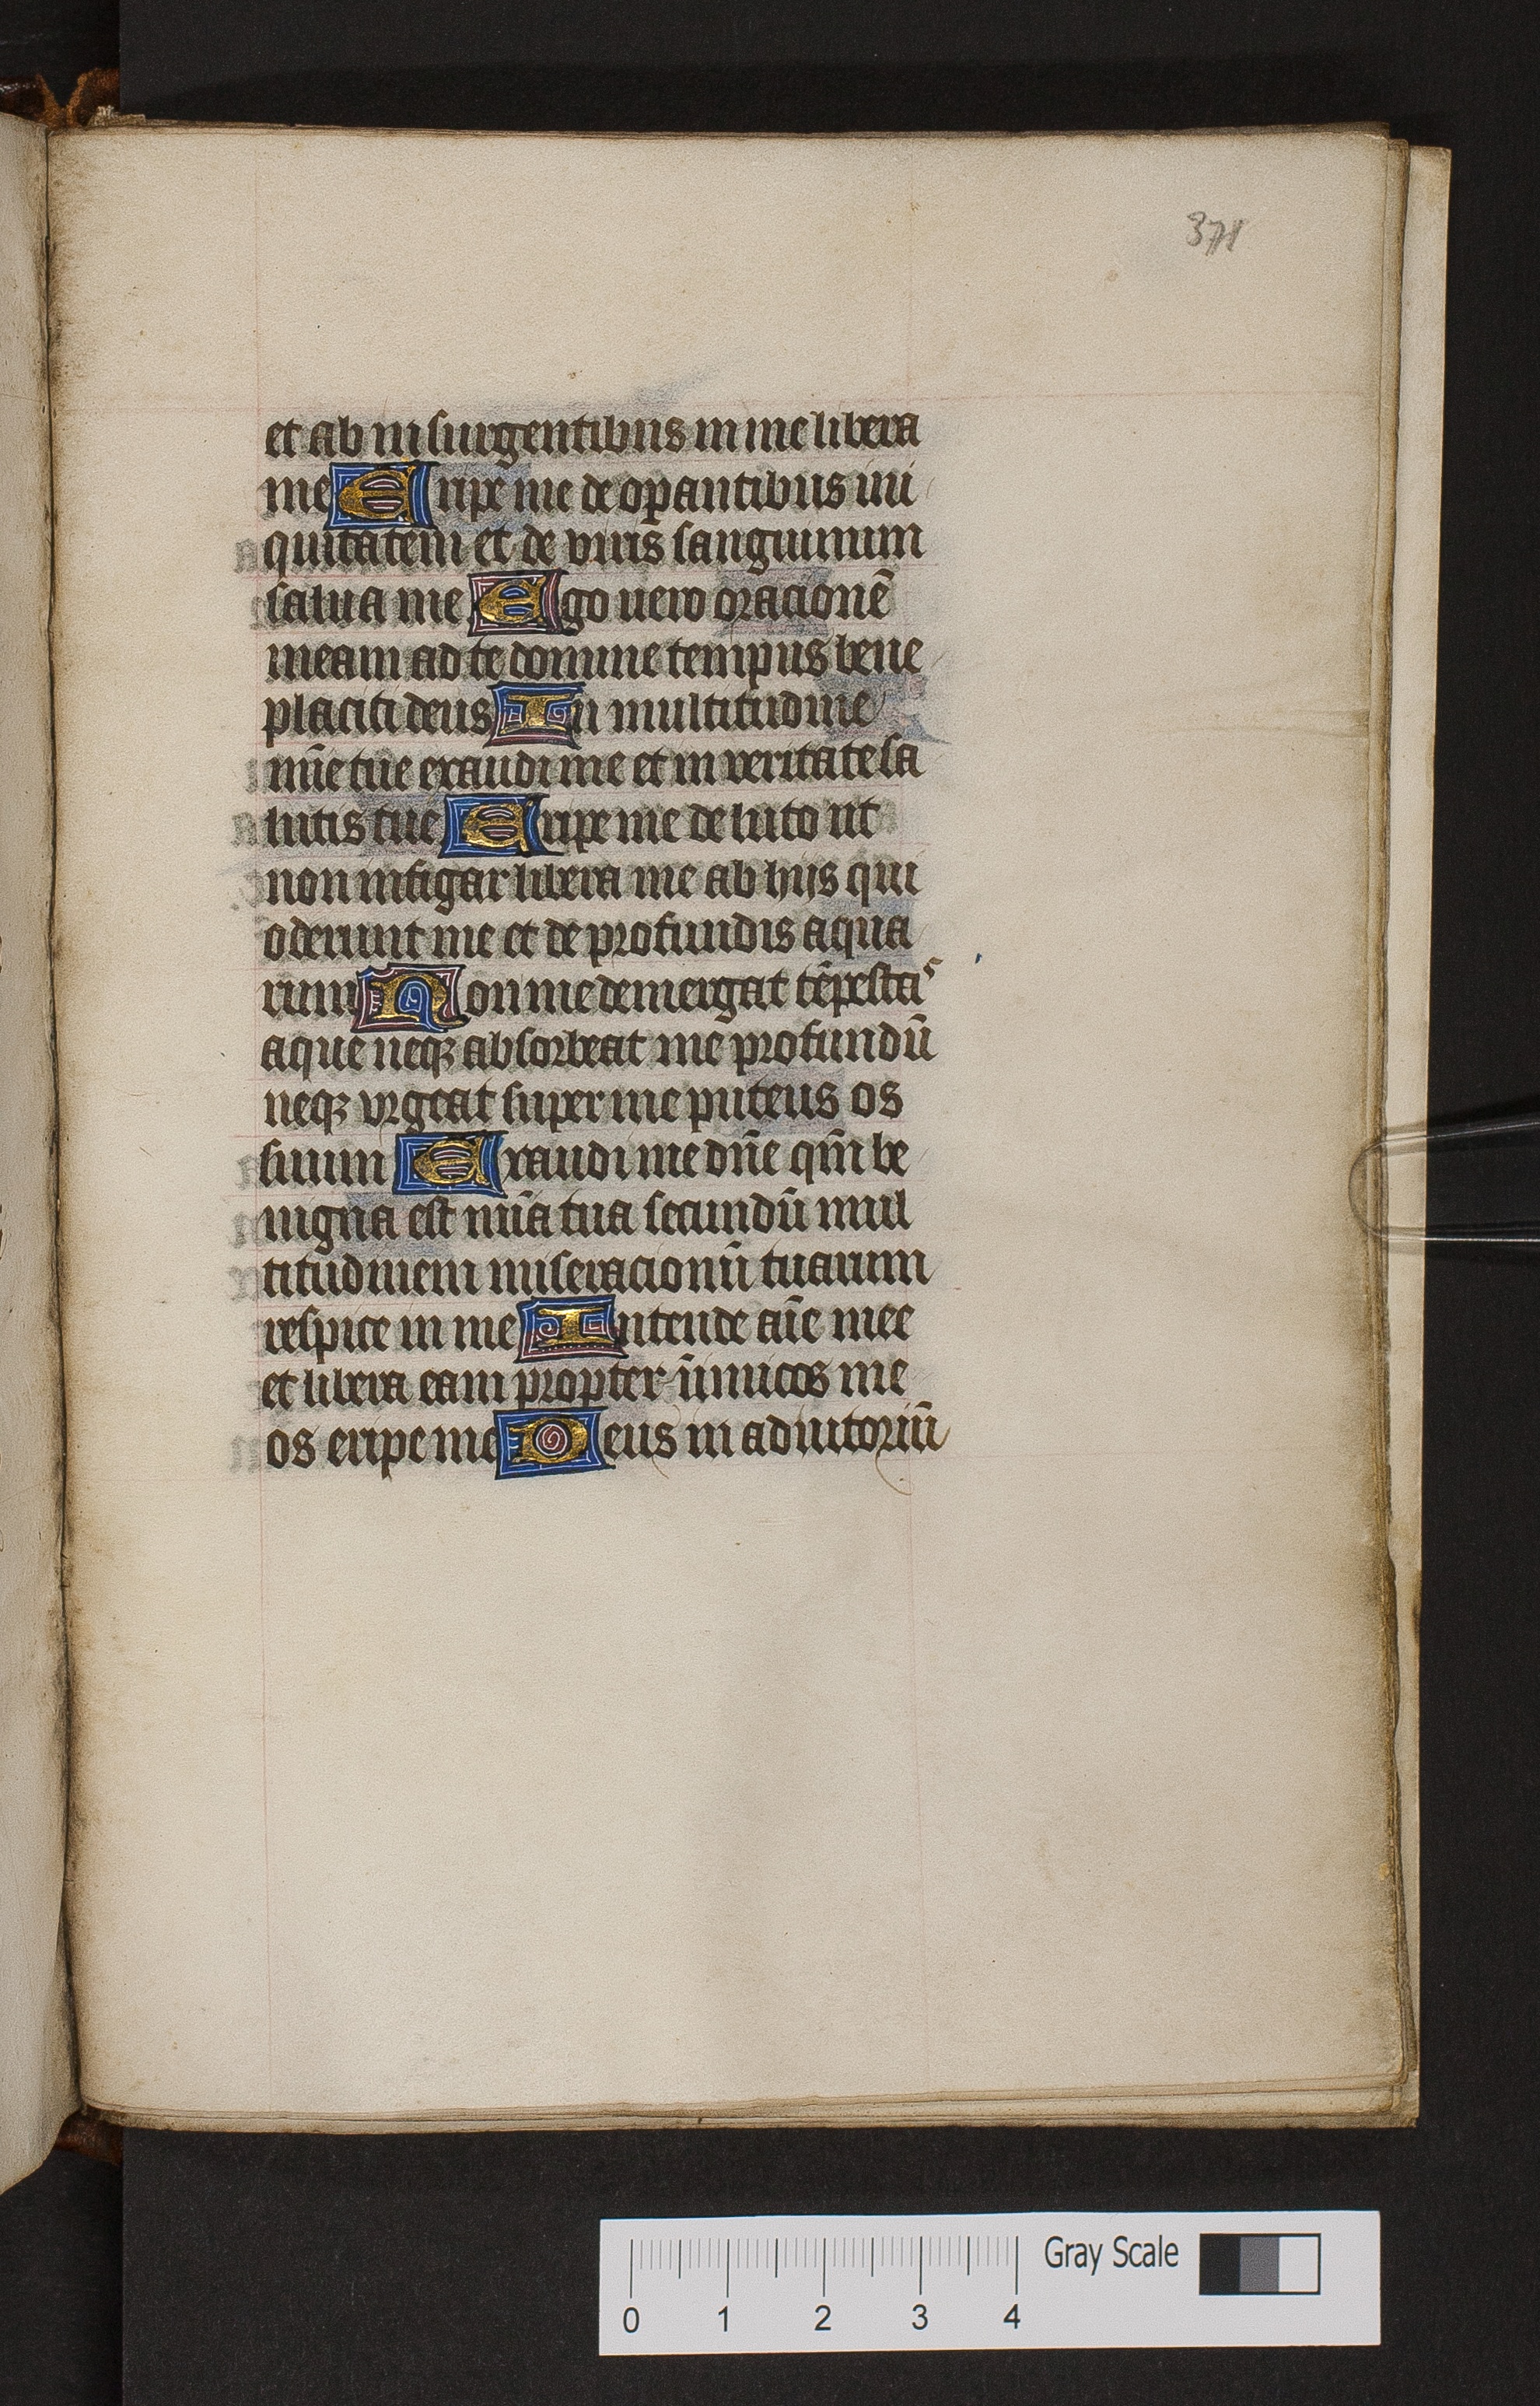 371
et ab insurgentibus in me libera
me Eripe me de op̱antibus ini
quitatem et de viris sanguinum
salua me Ego uero oracionē
meam ad te domine tempus bene
placiti deus In multitudine
mīe tue exaudi me et in veritate sa
lutis tue Eripe me de luto ut
non infigar libera me ab hijs qui
oderunt me et de profundis aqua
rum Non me demergat tēpestas
aque neqꝫ absorbeat me profundū
neqꝫ vrgeat super me puteus os
suum Exaudi me dn̄e qm̄ be
nigna est mīa tua secundū mul
titudinem miseracionū tuarum
respice in me Intende aīe mee
et libera eam propter īimicos me
os eripe me Deus in adiutoriū
0 1 2 3 4 Gray Scale